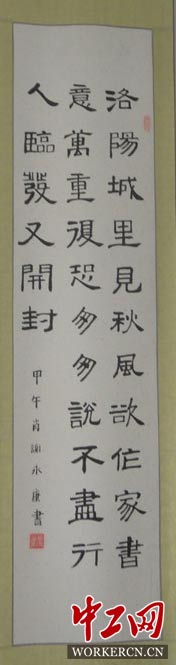 洛陽城里見秋風欲作家書
意萬重復恐匆匆說不盡行
人臨發又開封
甲午肖謝永康書
中工网
WORKERCN.CN